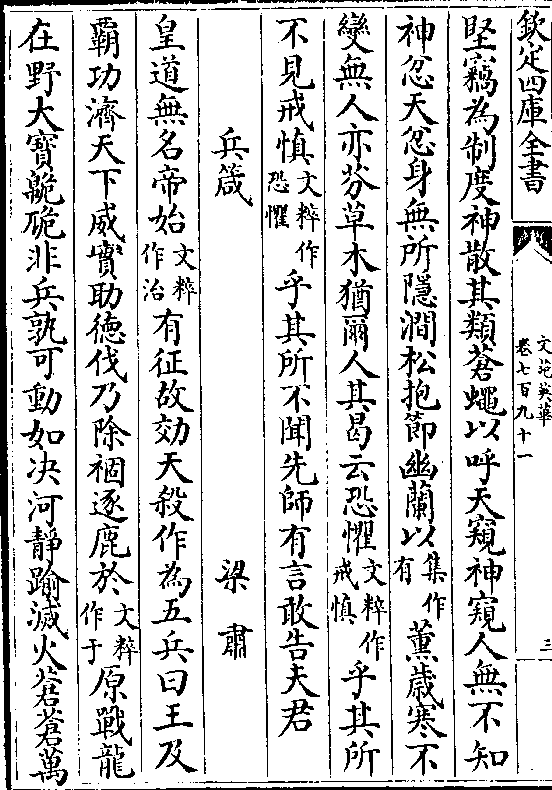 欽定四庫全書
文苑英華
卷七百九十一
三
堅竊為制度神散其類蒼蠅以呼天窺神窺人無不知
神忿天忿身無所隱澗松抱節幽蘭以集作有薰歲寒不
變無人亦芬草木猶爾人其曷云恐懼文粹作戒慎乎其所
不見戒慎文粹作恐懼乎其所不聞先師有言敢告夫君
兵箴 梁肅
皇道無名帝始文粹作治有征故効天殺作為五兵曰王及
霸功濟天下威實助德伐乃除禍逐鹿於文粹作于原戰龍
在野大寶艴卼非兵孰可動如决河靜踰滅火蒼蒼萬